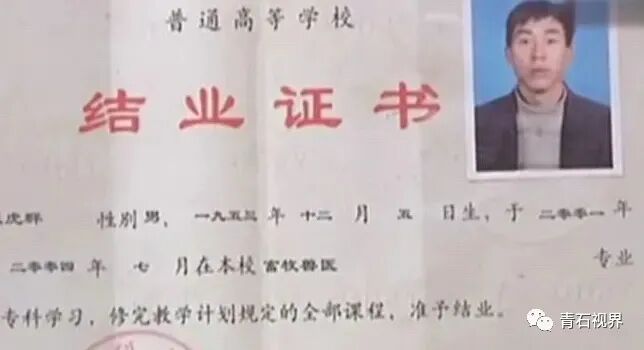 普通高等学校
结业证书
虎群 性别男，一九五三年十二月五日生，于二〇〇一年
二〇〇四年七月在本校畜牧兽医 专业
专科学习，修完教学计划规定的全部课程，准予结业。
青石视界